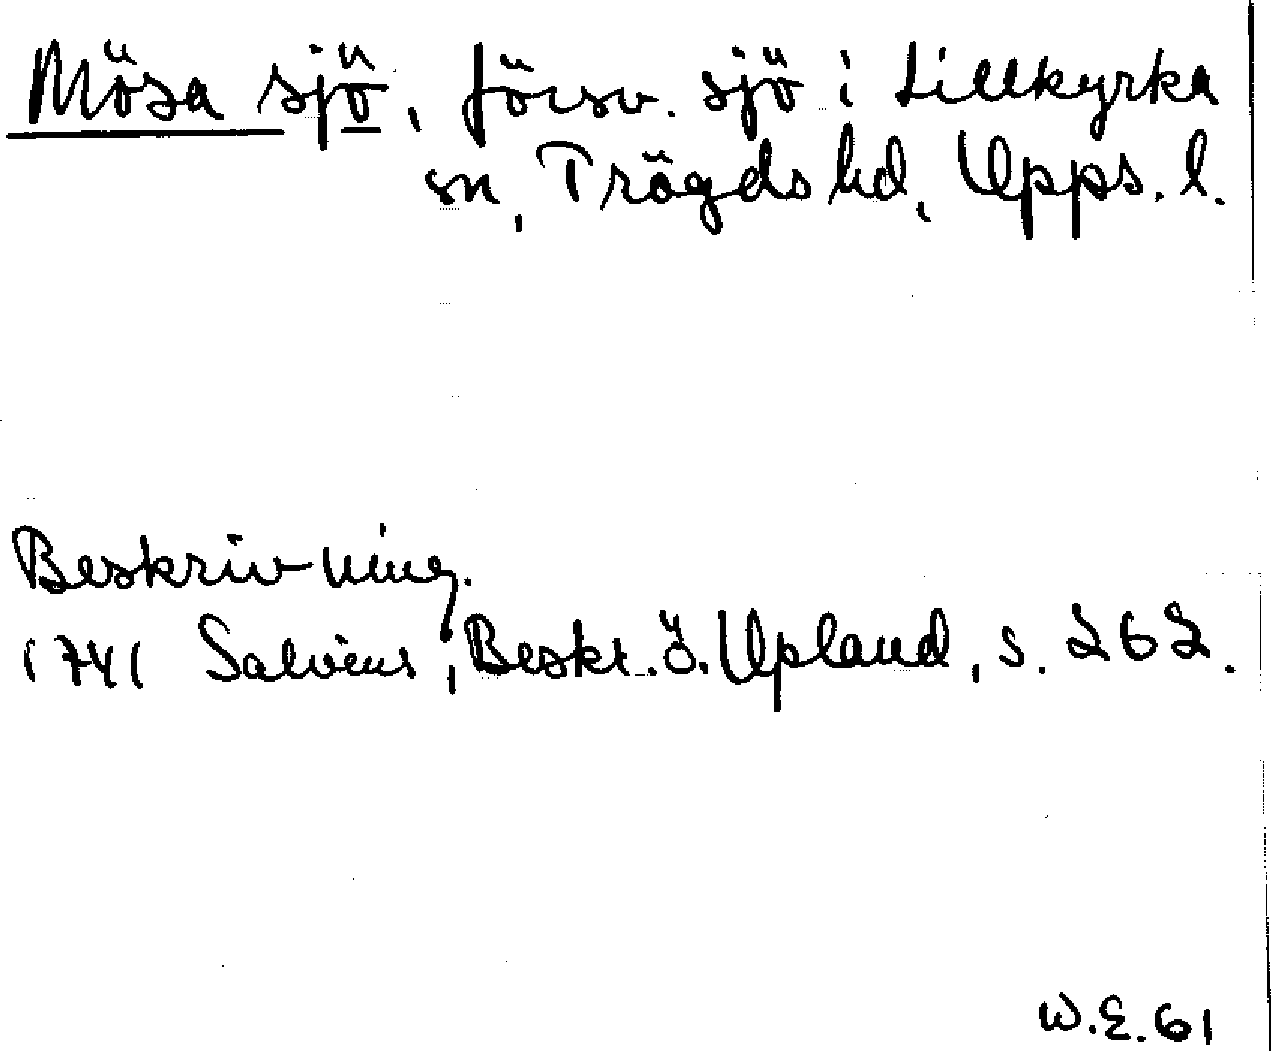 Mösa sjö, försv. sjö i Lillkyrka
sn, Trögds hd, Upps. l.
Beskrivning.
1741 Salvius, Beskr. ö. Upland, s. 262.
W.E. 61